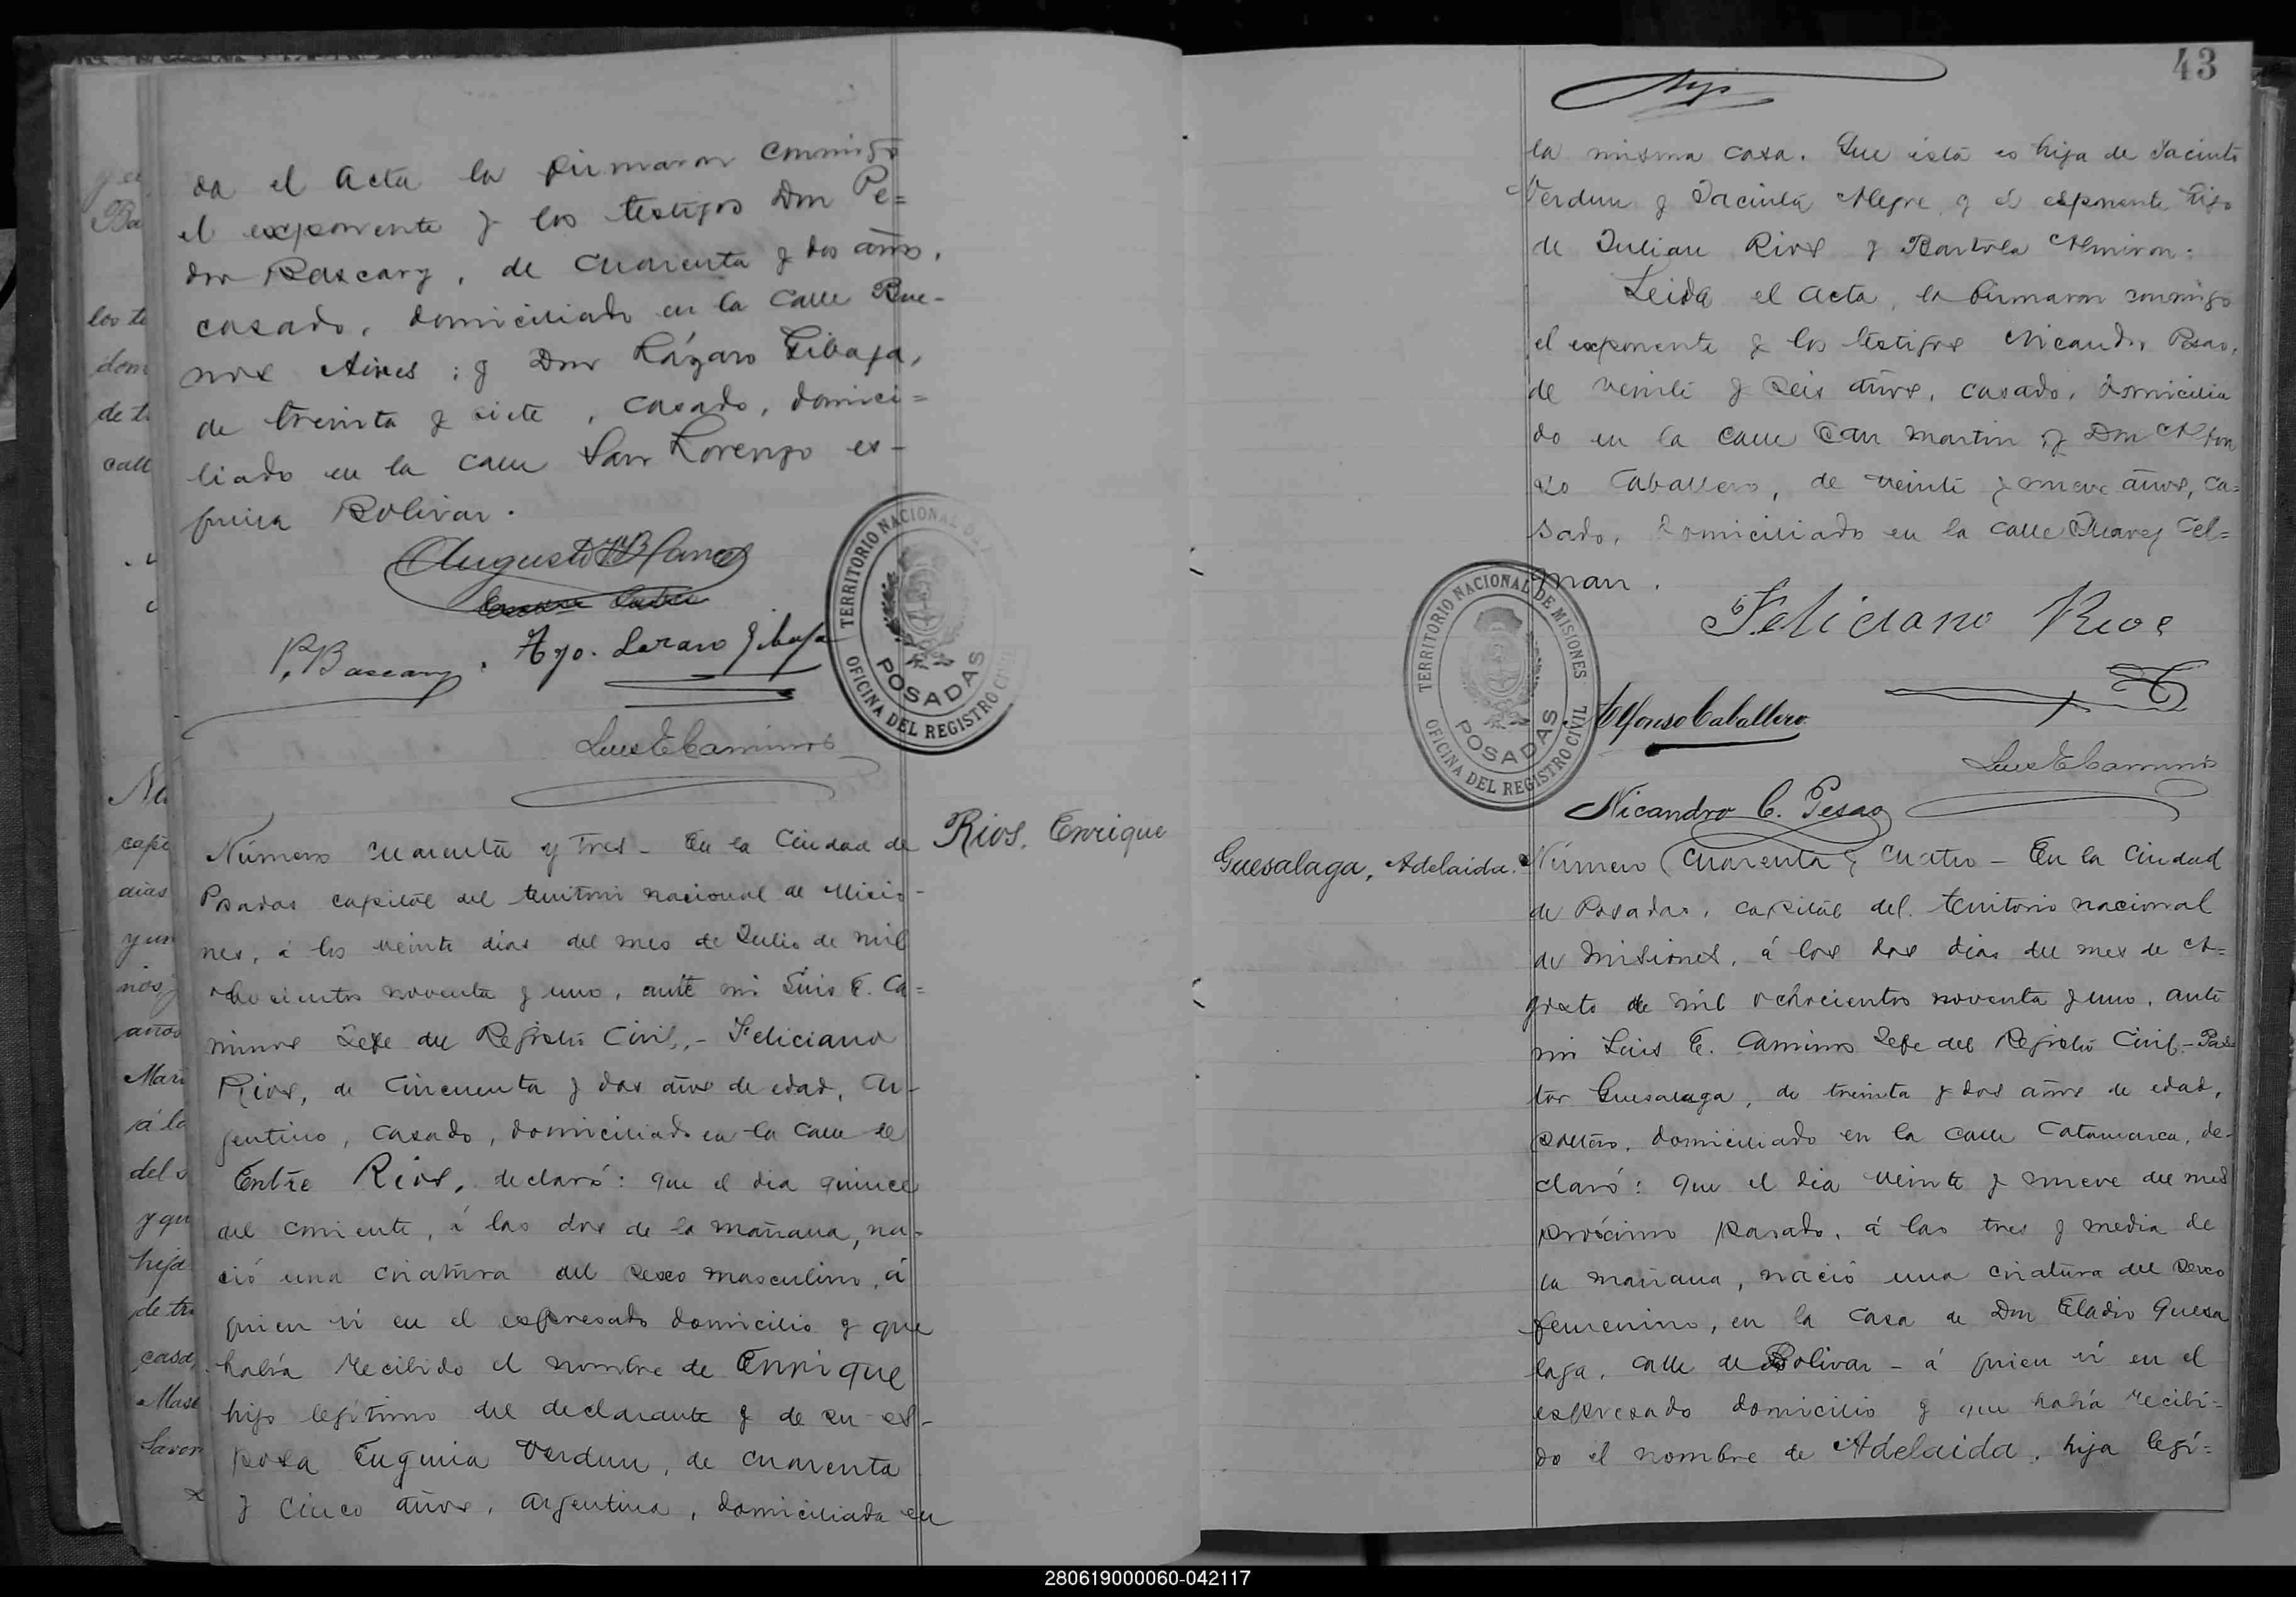 da el Acta la firmaron conmigo
el exponente y los testigos Don Pe=
dro Bascary, de cuarenta y dos años,
casado, domiciliado en la calle Bue-
nos Aires; y Don Lázaro Gibaja,
de treinta y siete, casado, domici=
liado en la calle San Lorenzo es-
quina Bolivar.
Augusto
P. Bascary.
Lazaro Gibaja
Luis E Caminos
TERRITORIO NACIONAL DE
POSADAS
OFICINA DEL REGISTRO CIVIL
Rios, Enrique
Número cuarenta y tres - En la Ciudad de
Posadas capital del territorio nacional de Micio-
nes, á los veinte dias del mes de Julio de mil
ochocientos noventa y uno, ante mi Luis E. Ca=
minos Jefe del Registro Civil,- Feliciano
Rios, de cincuenta y dos años de edad, Ar-
gentino, casado, domiciliado en la calle de
Entre Rios, declaró: que el dia quince
del corriente, á las dos de la mañana, na-
ció una criatura del sexo masculino, á
quien ví en el espresado domicilio y que
había recibido el nombre de Enrique
hijo legítimo del declarante y de su es-
posa Eugenia Verdun, de cuarenta
y cinco años, argentina, domiciliada en
43
hijo
la misma casa. Que ésta es hija de Jacinto
Verdun y Jacinta Alegre y el esponente hijo
de Julian Rios y Bartola Almiron:
Leida el Acta, la firmaron conmigo
el exponente y los testigos Nicandro Pesao,
de veinte y seis años, casado, domicilia
do en la calle San Martin; y Don Alfon
so Caballero, de veinte y nueve años, ca=
sado, domiciliado en la calle Juarez Cel=
man.
Feliciano Rios
TERRITORIO NACIONAL DE MISIONES
POSADAS
OFICINA DEL REGISTRO CIVIL
Alfonso Caballero
Luis E Caminos
Nicandro C. Pesao
Guesalaga, Adelaida.
Número cuarenta y cuatro - En la Ciudad
de Posadas, capital del territorio nacional
de Misiones, á los dos dias del mes de A=
gosto de mil ochocientos noventa y uno, ante
mi Luis E. Caminos Jefe del Registro Civil - Pas
tor Guesalaga, de treinta y dos años de edad,
soltero, domiciliado en la calle Catamarca, de-
claró: que el dia veinte y nueve del mes
próximo pasado, á las tres y media de
la mañana, nació una criatura del sexo
femenino, en la casa de Don Eladio Guesa
laga, calle de Bolivar - á quien ví en el
espresado domicilio y que había recibi=
do el nombre de Adelaida, hija legí=
280619000060-042117